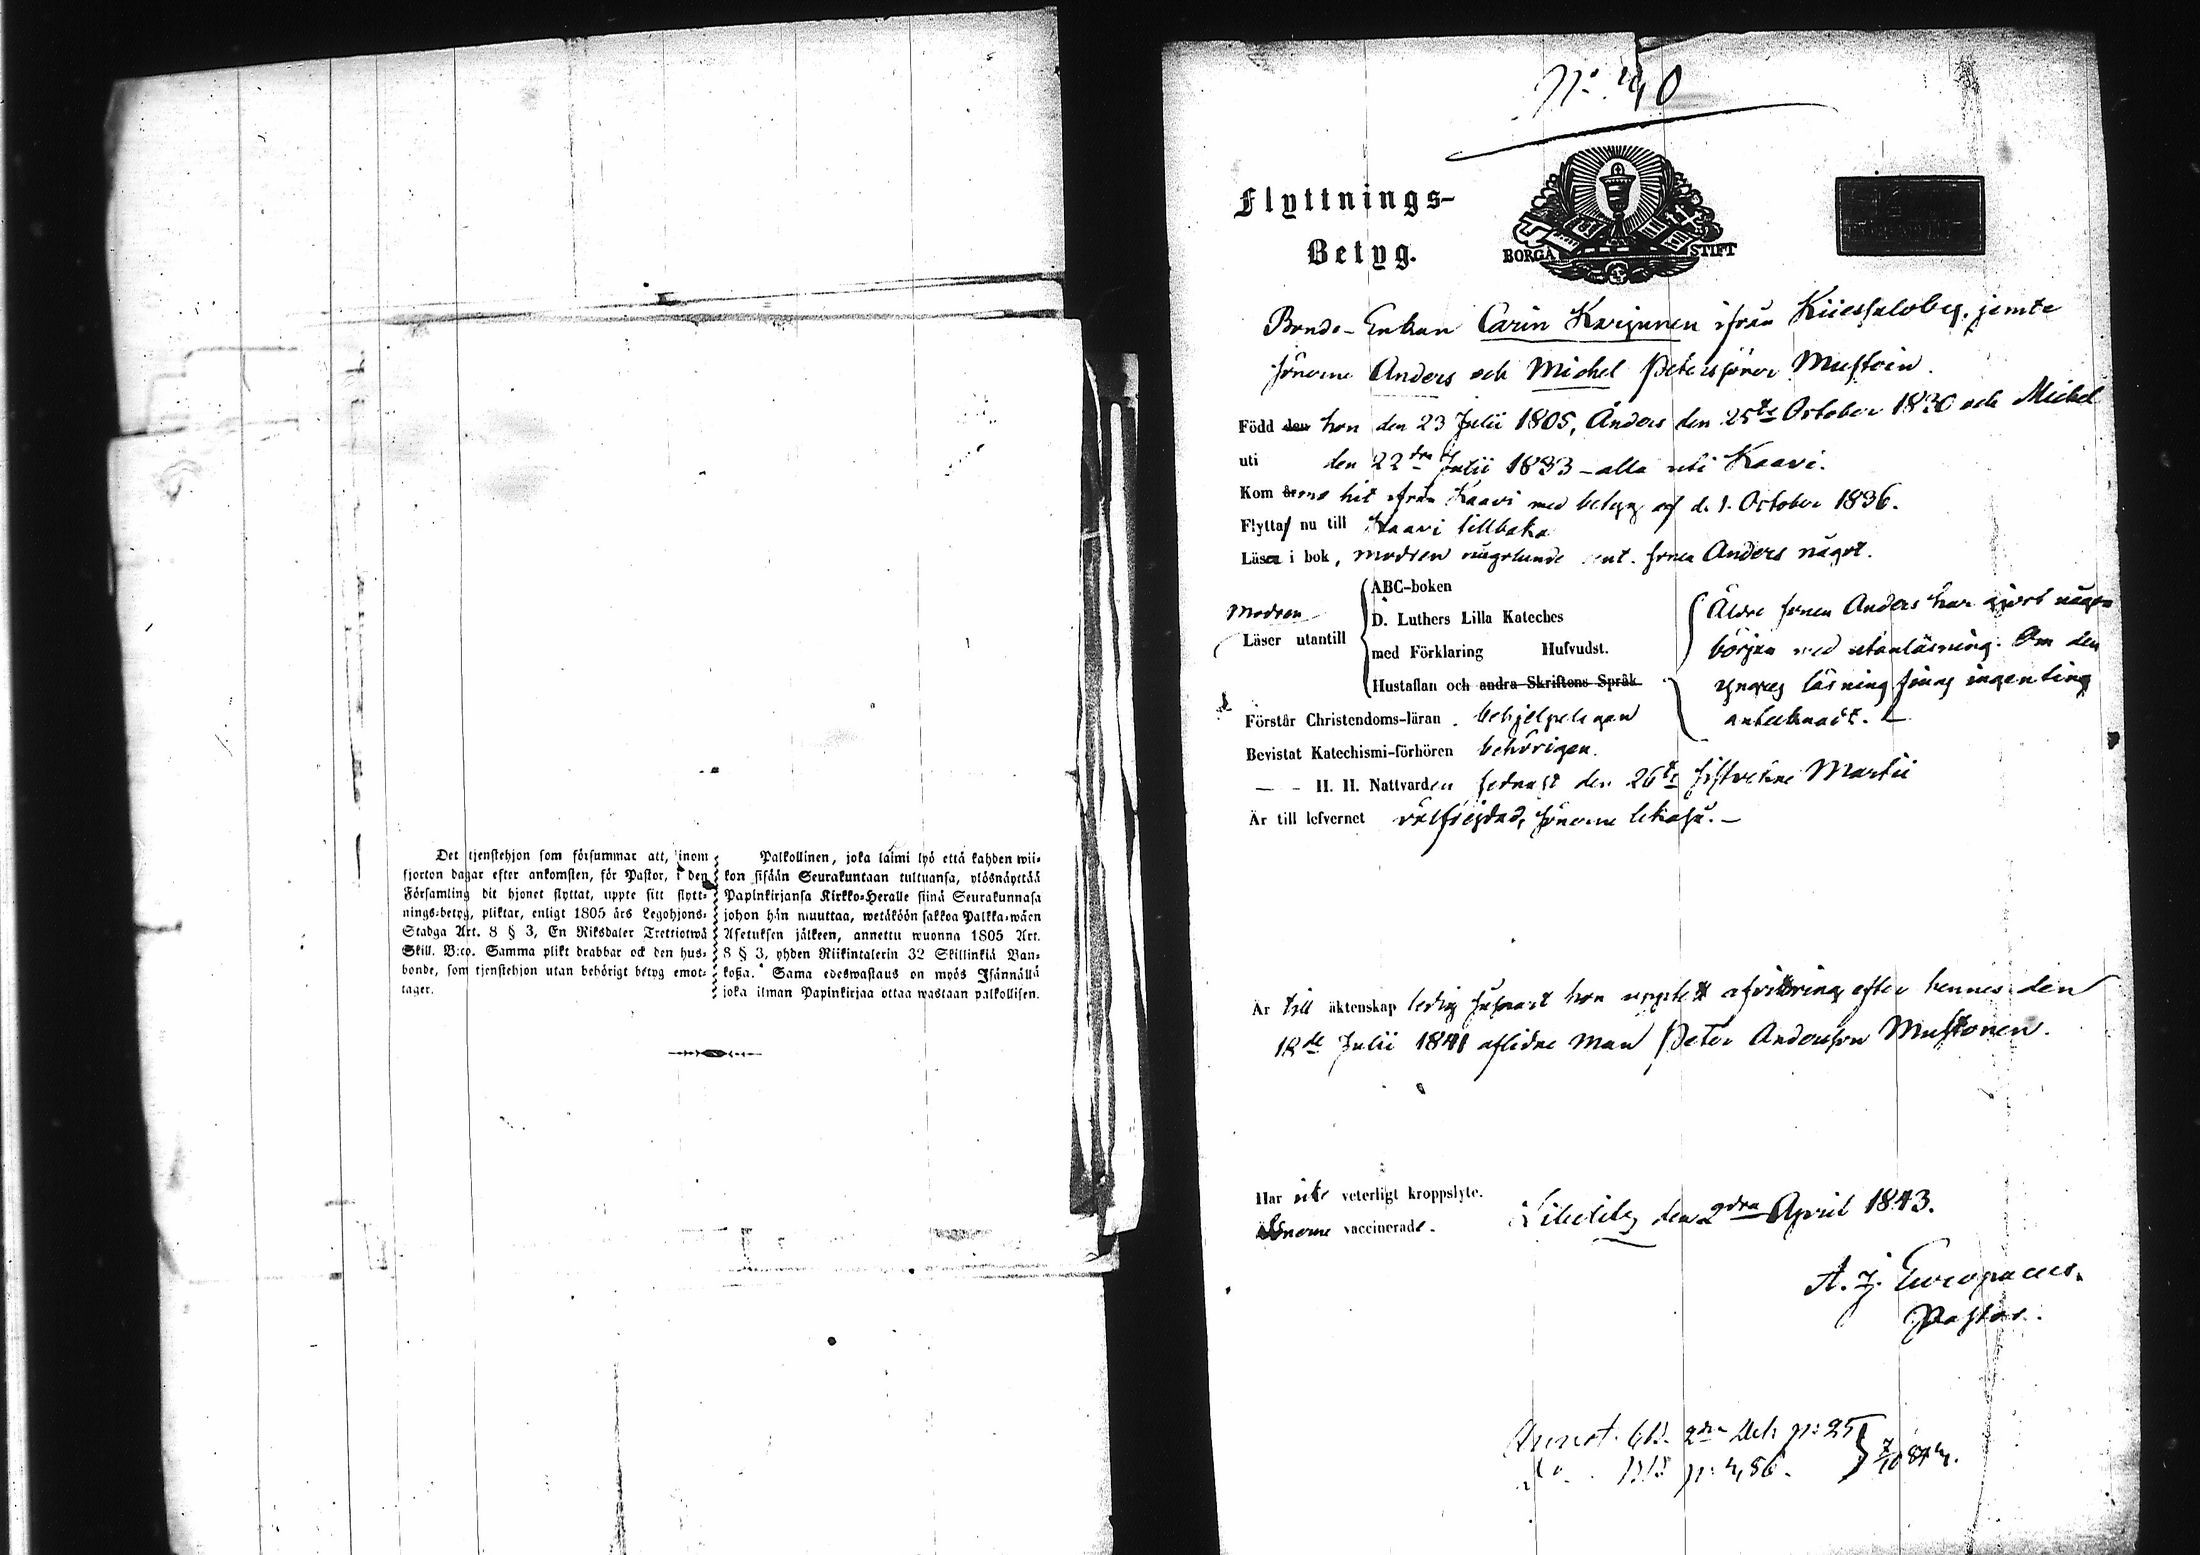 Det tjenstehjon som försummar att, inom
fjorton dagar efter ankomsten, för Pastor, i den
Församling dit hjonet flyttat, uppte sitt flytt-
nings-betyg, pliktar, enligt 1805 års Legohjons-
Stadga Art. 8 § 3, En Riksdaler Trettiotwå
Skill. B:co. Samma plikt drabbar ock den hus-
bonde, som tjenstehjon utan behörigt betyg emot-
tager.
Palkollinen, joka laimi lyö että kahden wii-
kon sisään Seurakuntaan tultuansa, ylösnäyttää
Papinkirjansa Kirkko-Heralle siinä Seurakunnasa
johon hän muuttaa, wetäköön sakkoa Palkka-wäen
Asetuksen jälkeen, annettu wuonna 1805 Art.
8 § 3, yhden Riikintalerin 32 Skillinkiä Ban-
koßa. Sama edeswastaus on myös Isännällä
joka ilman Papinkirjaa ottaa wastaan palkollisen.
No. 40
Flyttnings-
Betyg.
BORGÅ STIFT
Bonde-Enkan Carin Karjunen ifrån jemte
sönerne Anders och Michel Peterssöner Mustoin.
Född den hon den 23 Julii 1805, Anders den 25te October 1830 och Michel
uti den 22dra Julii 1833 - alla uti Kaavi.
Kom hit ifrån Kaavi med betyg af d. 1. October 1836.
Flytta nu till Kaavi tillbaka
Läsen i bok, modren någorlunda sonen Anders något.
ABC-boken
Modren
Läser utantill
D. Luthers Lilla Kateches
med Förklaring Hufvudst.
Hustaflan och andra Skriftens Språk
Äldre sonen Anders har gjort någon
början med utanläsning. Om den
yngres läsning finns ingenting
antecknadt.
Förstår Christendoms-läran behjelpeligen
Bevistat Katechismi-förhören behörigen.
— - H. H. Nattvarden sednast den 26te sistvekne Martii
Är till lefvernet välfrejdad, sönerne likaså. -
Är till äktenskap ledig hon efter hennes den
18de Julii 1841 aflidne man Peter Andersson Mustonen.
Har icke veterligt kroppslyte.
Sönerne vaccinerade.
Libelitz den 2dra April 1843.
A. J. Europaeus.
Pastor.
Annot. 2dra p: 25
p: 486.